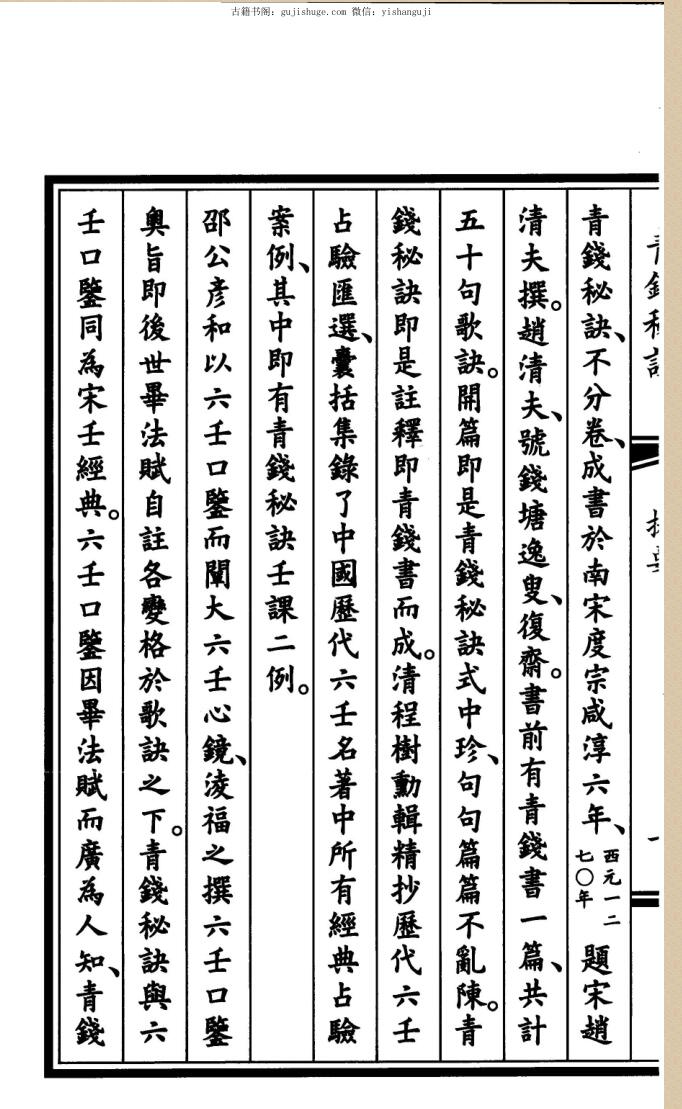 古籍书阁：gujishuge.com 微信：yishanguji
青錢秘訣、不分卷、成書於南宋度宗咸淳六年、西元一二七〇年題宋趙
清夫撰。趙清夫、號錢塘逸叟、復齋。書前有青錢書一篇、共計
五十句歌訣。開篇即是青錢秘訣式中珍、句句篇篇不亂陳。青
錢秘訣即是註釋即青錢書而成。清程樹勳輯精抄歷代六壬
占驗匯選、囊括集錄了中國歷代六壬名著中所有經典占驗
案例、其中即有青錢秘訣壬課二例。
邵公彥和以六壬口鑒而闡大六壬心鏡、淩福之撰六壬口鑒
奧旨即後世畢法賦自註各變格於歌訣之下。青錢秘訣與六
壬口鑒同為宋壬經典。六壬口鑒因畢法賦而廣為人知、青錢